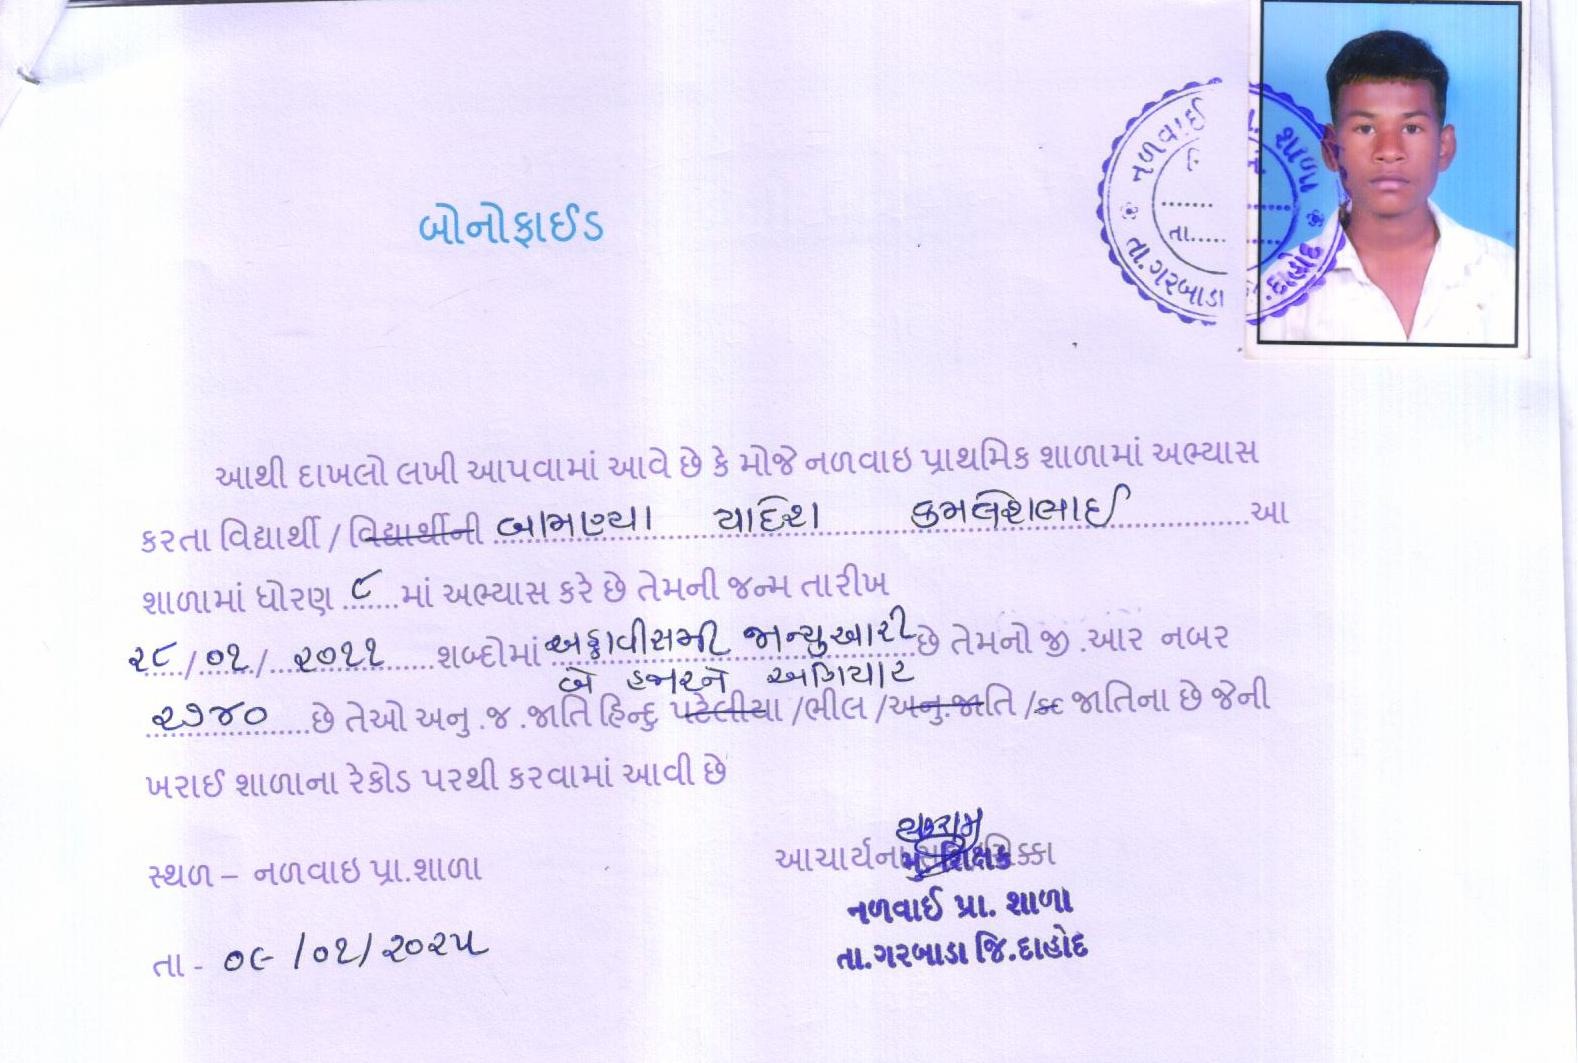 બોનોફાઈડ
નળવાઈ પ્રા. શાળા
તા.......
તા.ગરબાડા જિ.દાહોદ
આથી દાખલો લખી આપવામાં આવે છે કે મોજે નળવાઇ પ્રાથમિક શાળામાં અભ્યાસ
કરતા વિદ્યાર્થી / વિદ્યાર્થીની બામણ્યા યાદેશ કમલેશભાઈ આ
શાળામાં ધોરણ ૮ માં અભ્યાસ કરે છે તેમની જન્મ તારીખ
૨૮/૦૧/ ૨૦૧૧ શબ્દોમાં અઠ્ઠાવીસમી જાન્યુઆરી છે તેમનો જી .આર નબર
બે હજારને અગિયાર
૨૭૪૦ છે તેઓ અનુ .જ .જાતિ હિન્દુ પટેલીયા /ભીલ /અનુ.જાતિ / જાતિના છે જેની
ખરાઈ શાળાના રેકોડ પરથી કરવામાં આવી છે
સ્થળ – નળવાઇ પ્રા.શાળા
આચાર્યના સિક્કા
મુ. શિક્ષક
નળવાઈ પ્રા. શાળા
તા.ગરબાડા જિ.દાહોદ
તા - ૦૯ /૦૧/ ૨૦૨૫